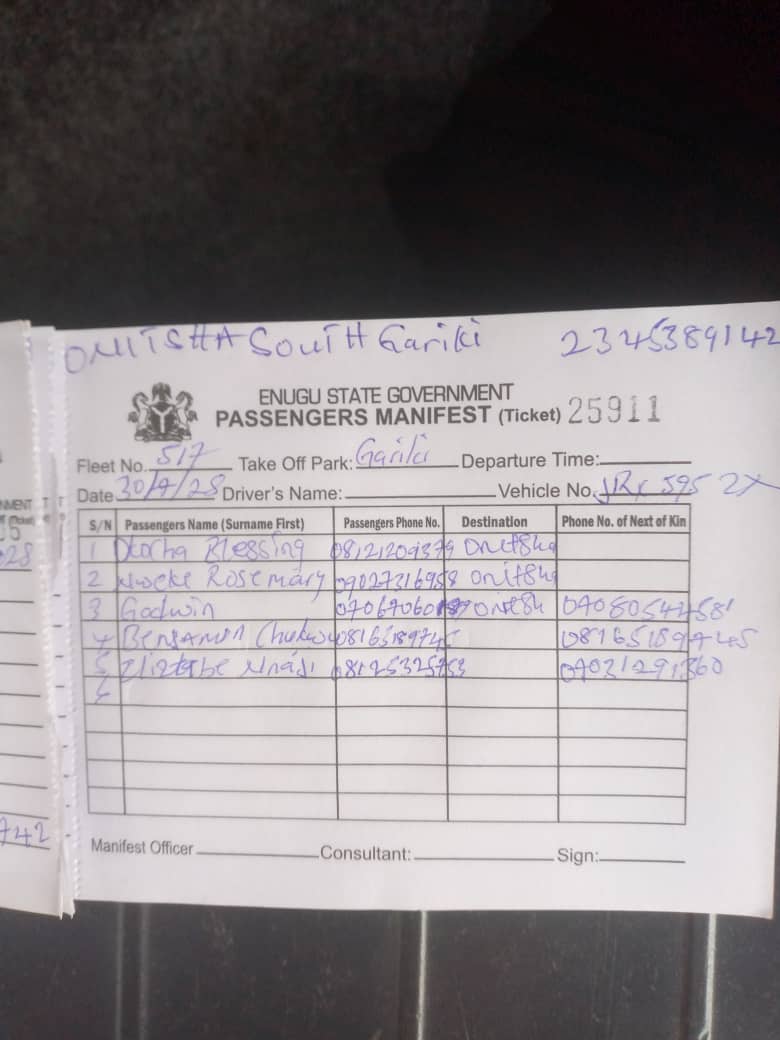 ONITSHA SOUTH Gariki 2345389142
ENUGU STATE GOVERNMENT
PASSENGERS MANIFEST (Ticket) 25911
Fleet No. 517 Take Off Park: Gariki Departure Time:
Date 30/9/28 Driver's Name: Vehicle No. JRV 595 2X
S/N Passengers Name (Surname First) Passengers Phone No. Destination Phone No. of Next of Kin
1 Okorha Blessing 08121209379 Onitsha
2 Nweke Rosemary 09027316958 Onitsha
3 Godwin Onitsh
4 Benjamen 08165189745 08165189745
5 Nnaji 08125325753 07031291360
6
Manifest Officer Consultant: Sign:
NMENT
28
742